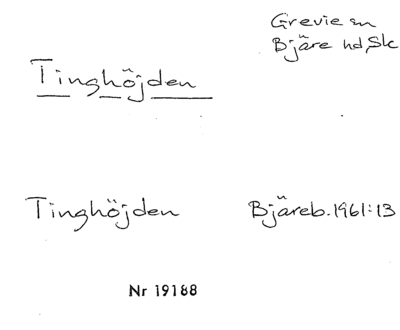 Grevie sn
Bjäre hd, Sk
Tinghöjden
Tinghöjden Bjäreb. 1961:13
Nr 19188